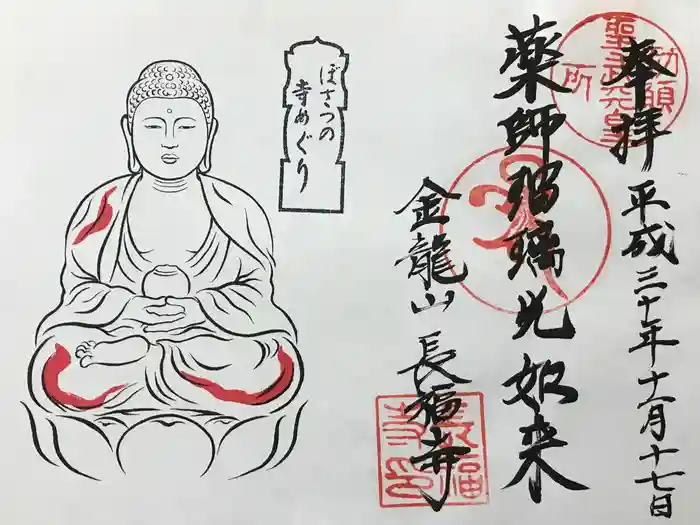 奉拝
平成三十年十一月十七日
聖武天皇
勅願
所
薬師瑠璃光如来
金龍山 長福寺
長福
寺印
ぼさつの
寺めぐり